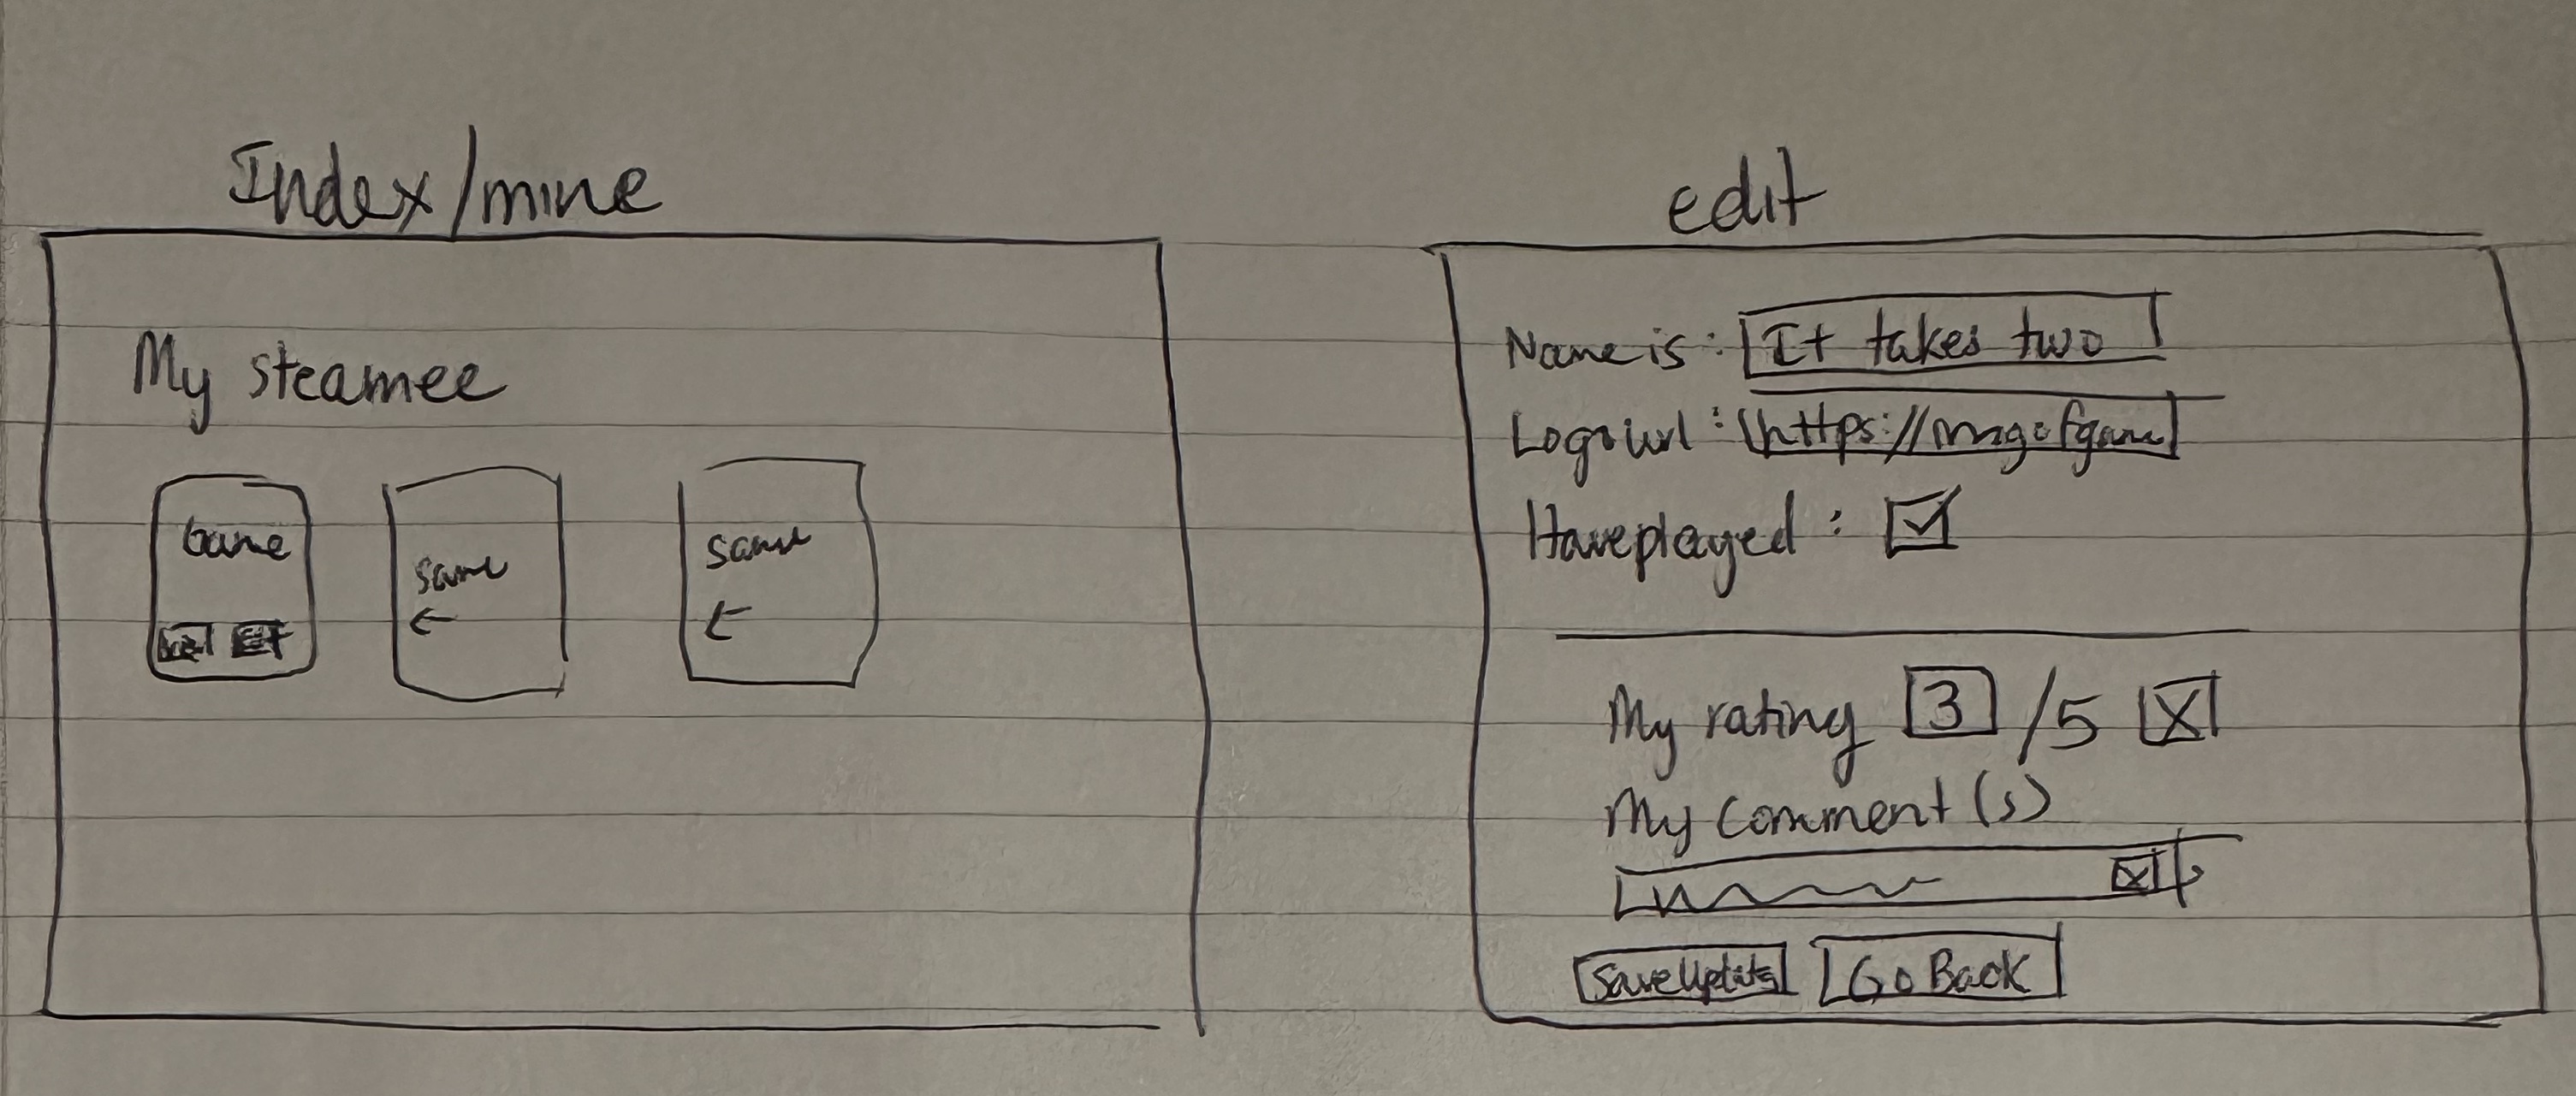 Index/mine
My steamee
Game
same
same
edit
Name is: It takes two
Logo url: https://imgofgame
Have played:
My rating 3 /5 X
My comment(s)
X
Save Updates Go Back